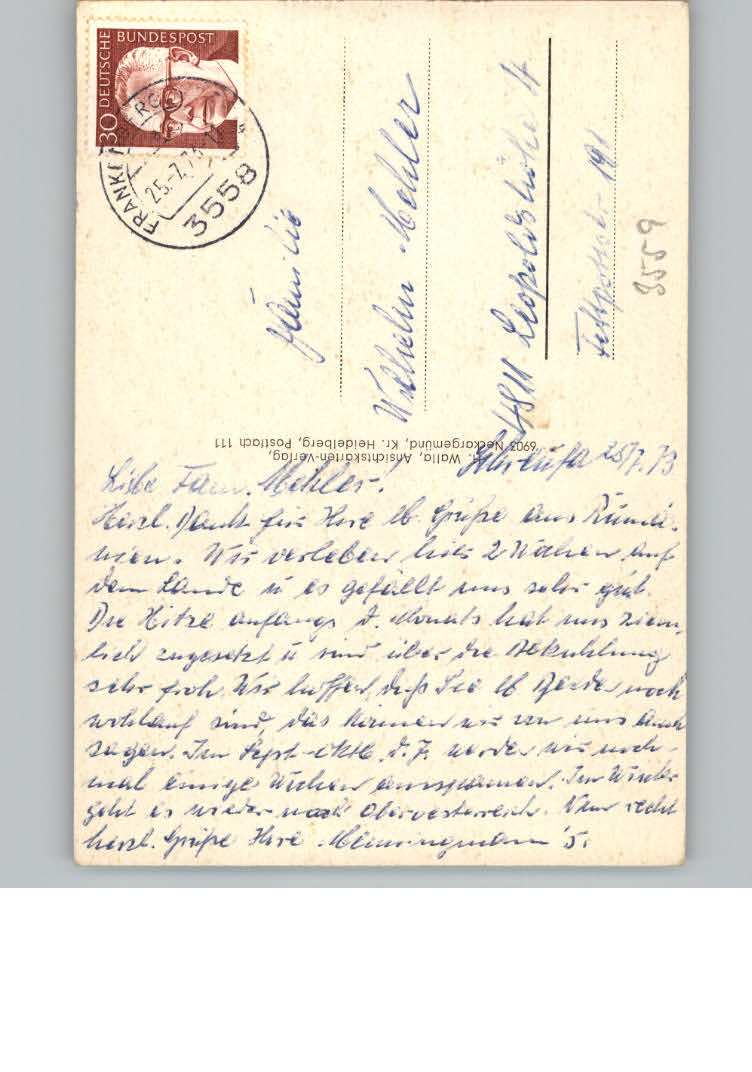 DEUTSCHE BUNDESPOST
30
25.-7.73
3558
Familie
Wilhelm Mehler
4811 Leopoldshöhe 4
191
3559
H. Wallo, Ansichtskarten-Verlag,
6903 Neckargemünd, Kr. Heidelberg, Postfach 111
25/7.73
Liebe Fam. Mehler!
Herzl. Dank für Ihre lb. Grüße aus Rumä-
nien. Wir verleben hier 2 Wochen auf
dem Lande u es gefällt uns sehr gut.
Die Hitze anfangs d. Monats hat uns ziem-
lich zugesetzt u sind über die Abkühlung
sehr froh. Wir hoffen, daß Sie lb Beide noch
wohlauf sind, das können wir von uns auch
sagen. Im Sept-Okt. d. J. werden wir noch-
mal einige Wochen ausspannen. Im Winter
geht es wieder nach Oberösterreich. Nun recht
herzl. Grüße Ihre